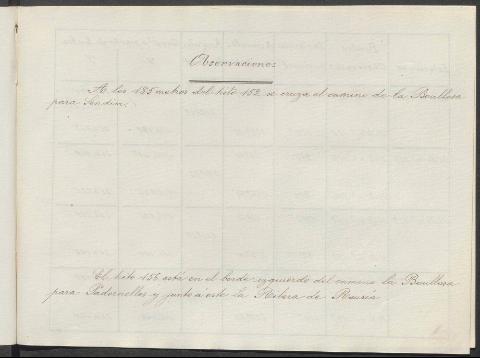 Observaciones
A los 185 metros del hito 152 se cruza el camino de la Boullosa
para Sendim.
El hito 156 está en el borde izquierdo del camino la Boullosa
para Padornelles y junto á este la de